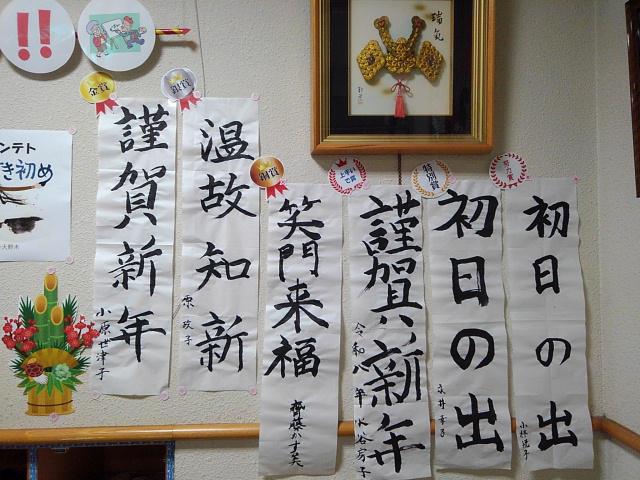 !!
瑞気
金賞
謹賀新年
小原世津子
銀賞
温故知新
原 玟子
銅賞
笑門来福
齊藤かず美
上手いで賞
謹賀新年
令和八年 水谷房子
特別賞
初日の出
永井幸子
努力賞
初日の出
ンテト
き初め